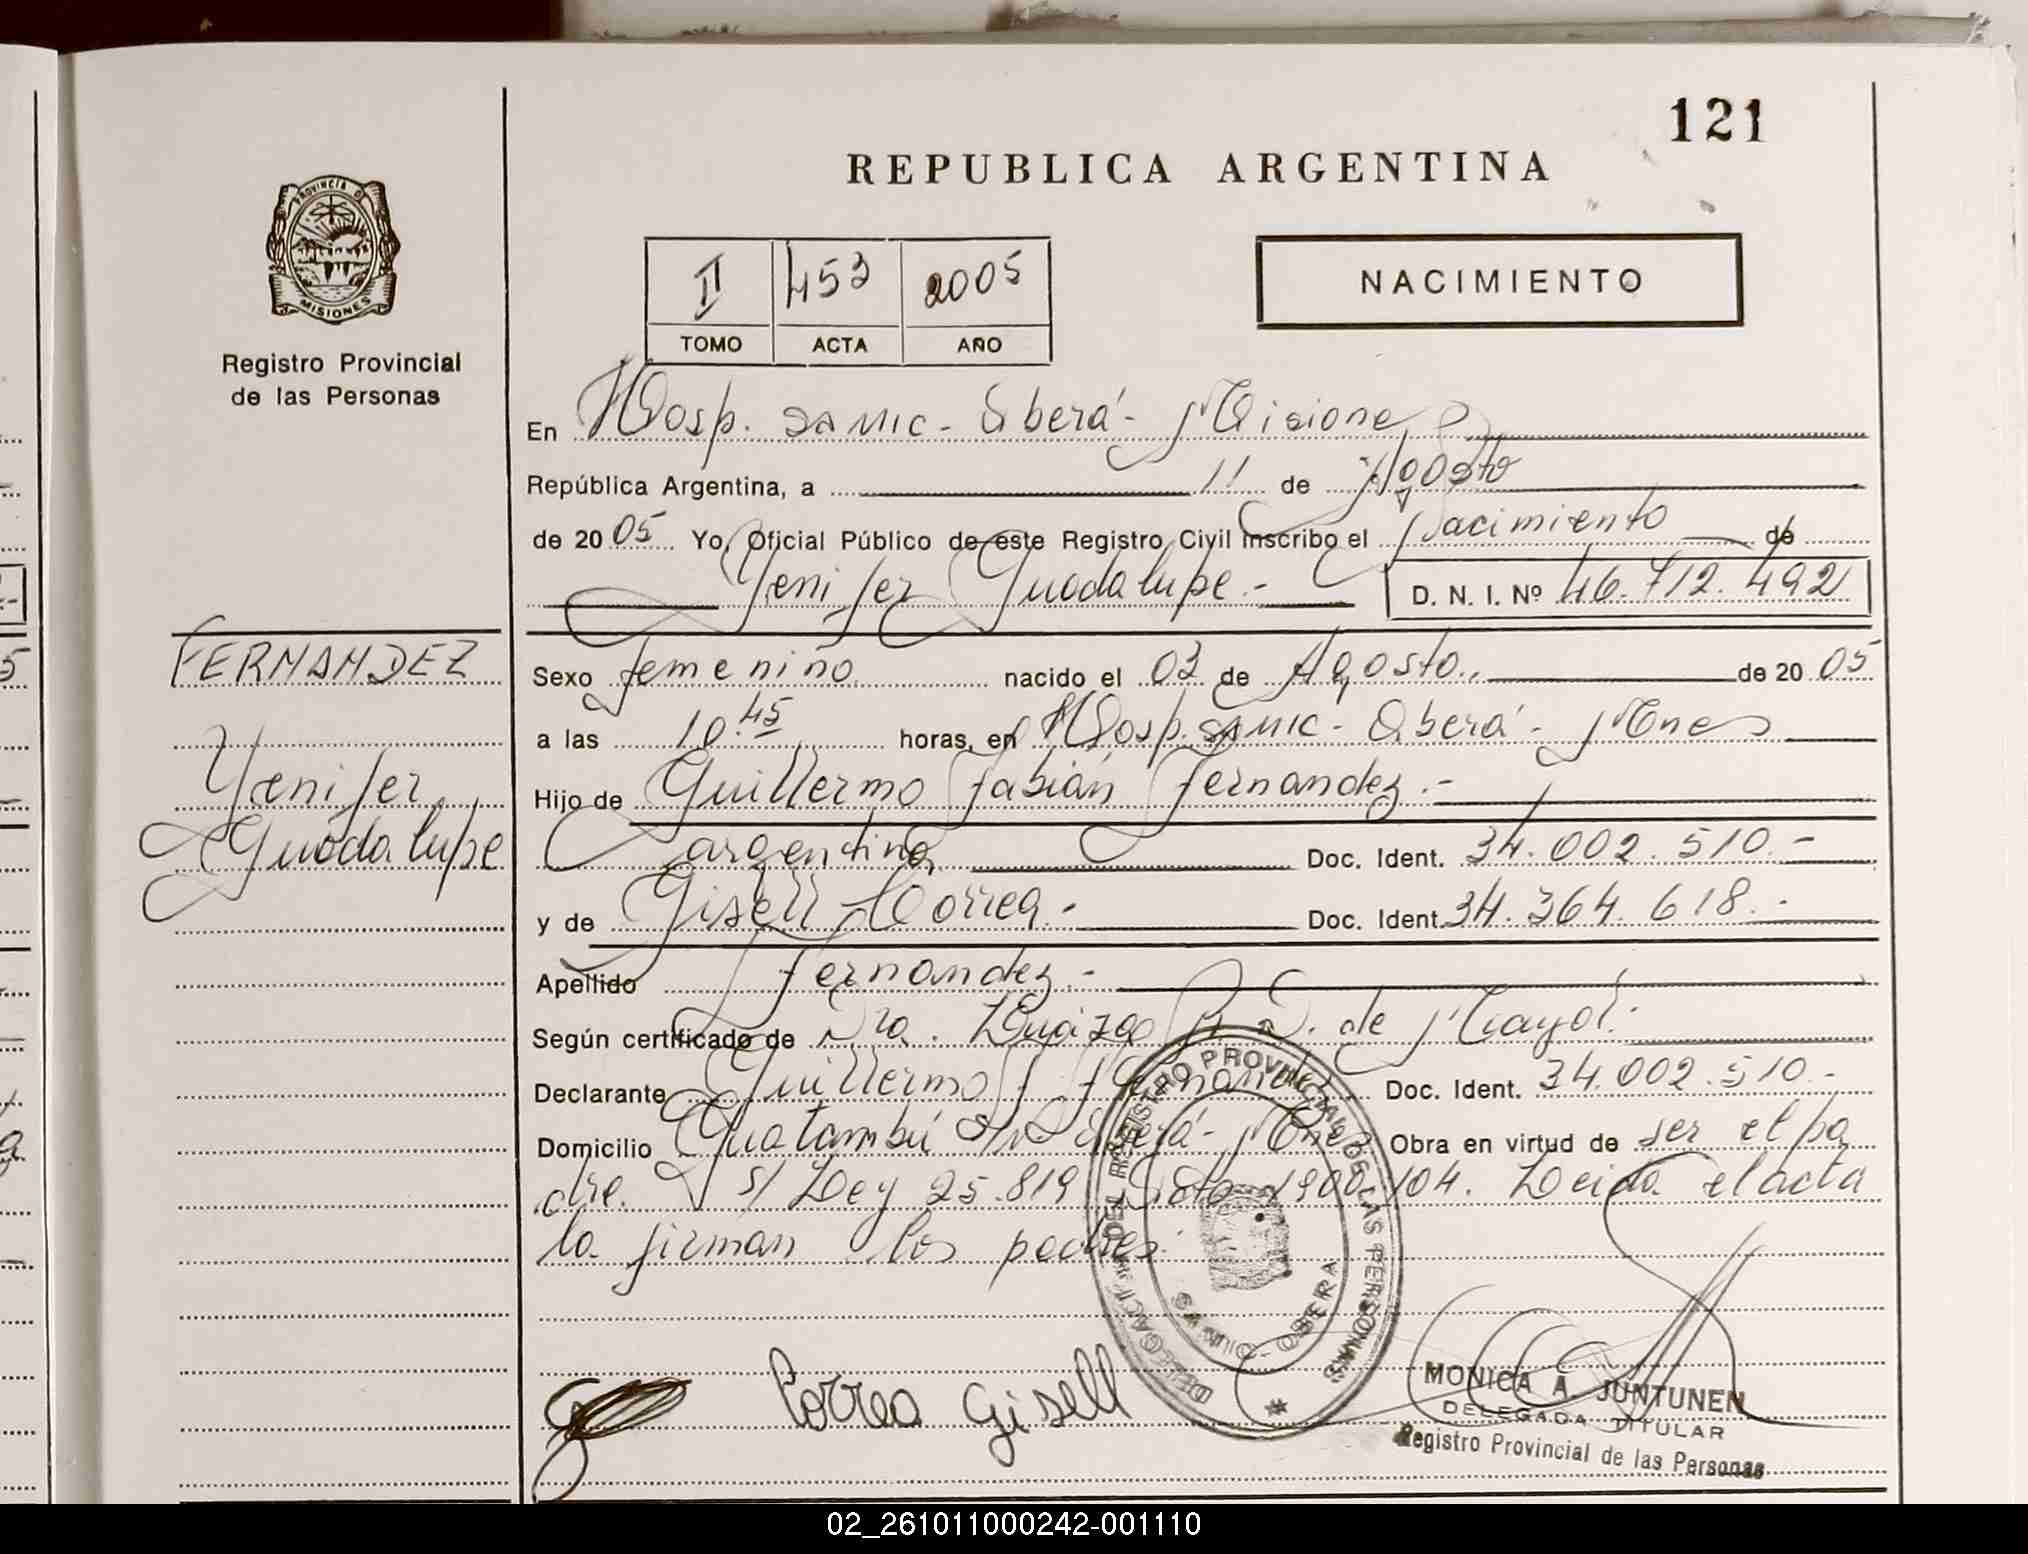 121
REPUBLICA ARGENTINA
PROVINCIA DE
MISIONES
Registro Provincial
de las Personas
II 453 2005
TOMO ACTA AÑO
NACIMIENTO
En Hosp. SAMIC - Oberá - Misiones
República Argentina, a 11 de Agosto
de 2005 Yo, Oficial Público de este Registro Civil inscribo el Nacimiento de
Yenifer Guadalupe.- D. N. I. Nº 46.712.492
FERNANDEZ
Yenifer
Guadalupe
Sexo femenino nacido el 03 de Agosto.. de 2005
a las 10.45 horas, en Hosp. SAMIC - Oberá - Mnes
Hijo de Guillermo Fabián Fernandez.-
argentino, Doc. Ident. 34.002.510.-
y de Gisell Correa.- Doc. Ident. 34.364.618.-
Apellido Fernandez.-
Según certificado de Dra. de
Declarante Guillermo F. Fernandez Doc. Ident. 34.002.510.-
Domicilio Guatambú S/N Oberá - Mnes Obra en virtud de ser el pa
dre. S/ Ley 25.819 1900/04. Leida el acta
la firman los padres.
DELEGACION DEL REGISTRO PROVINCIAL DE LAS PERSONAS
SAMIC - OBERA
Correa Gisell
MONICA A. JUNTUNEN
DELEGADA TITULAR
Registro Provincial de las Personas
02_261011000242-001110